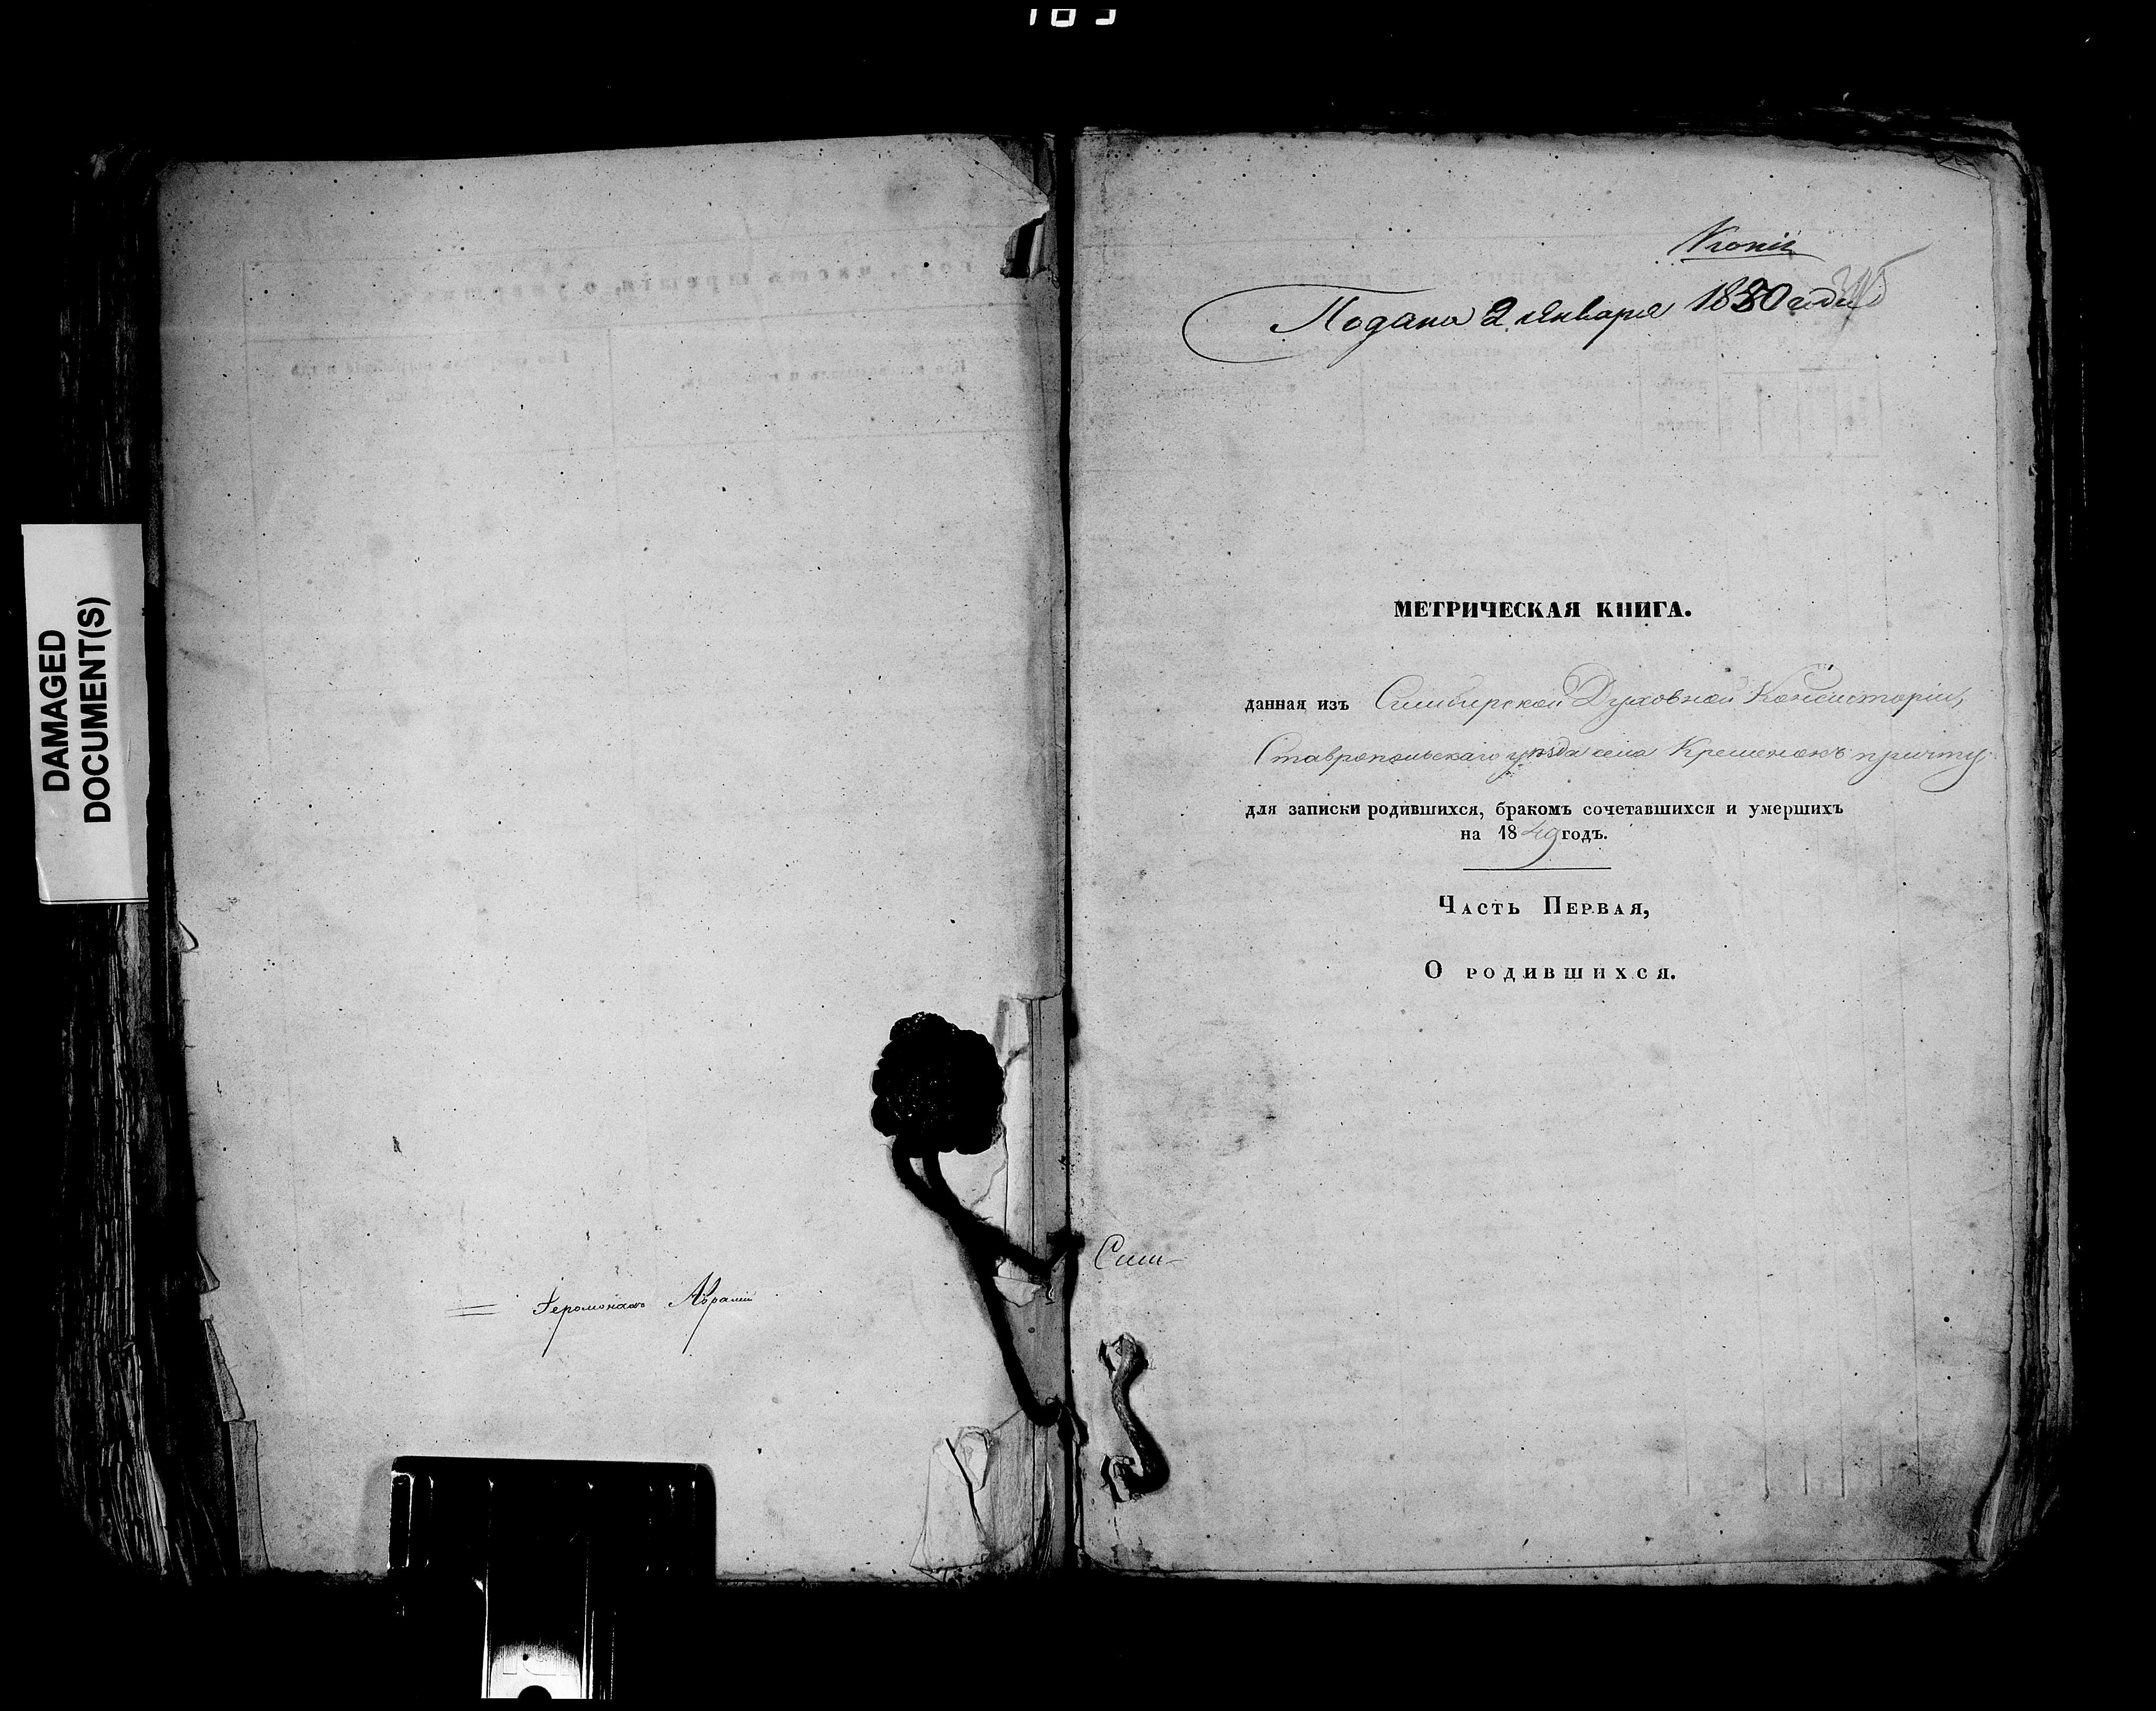 DAMAGED
DOCUMENT(S)
Іеромонахъ Авраміи
Копія
Подана 2 Января 1850 года
МЕТРИЧЕСКАЯ КНИГА.
данная изъ Симбирской Духовной Консисторіи,
Ставропольскаго уѣзда села Кременокъ причту
для записки родившихся, бракомъ сочетавшихся и умершихъ
на 1849 годъ.
Часть Первая,
О родившихся.
Сим-